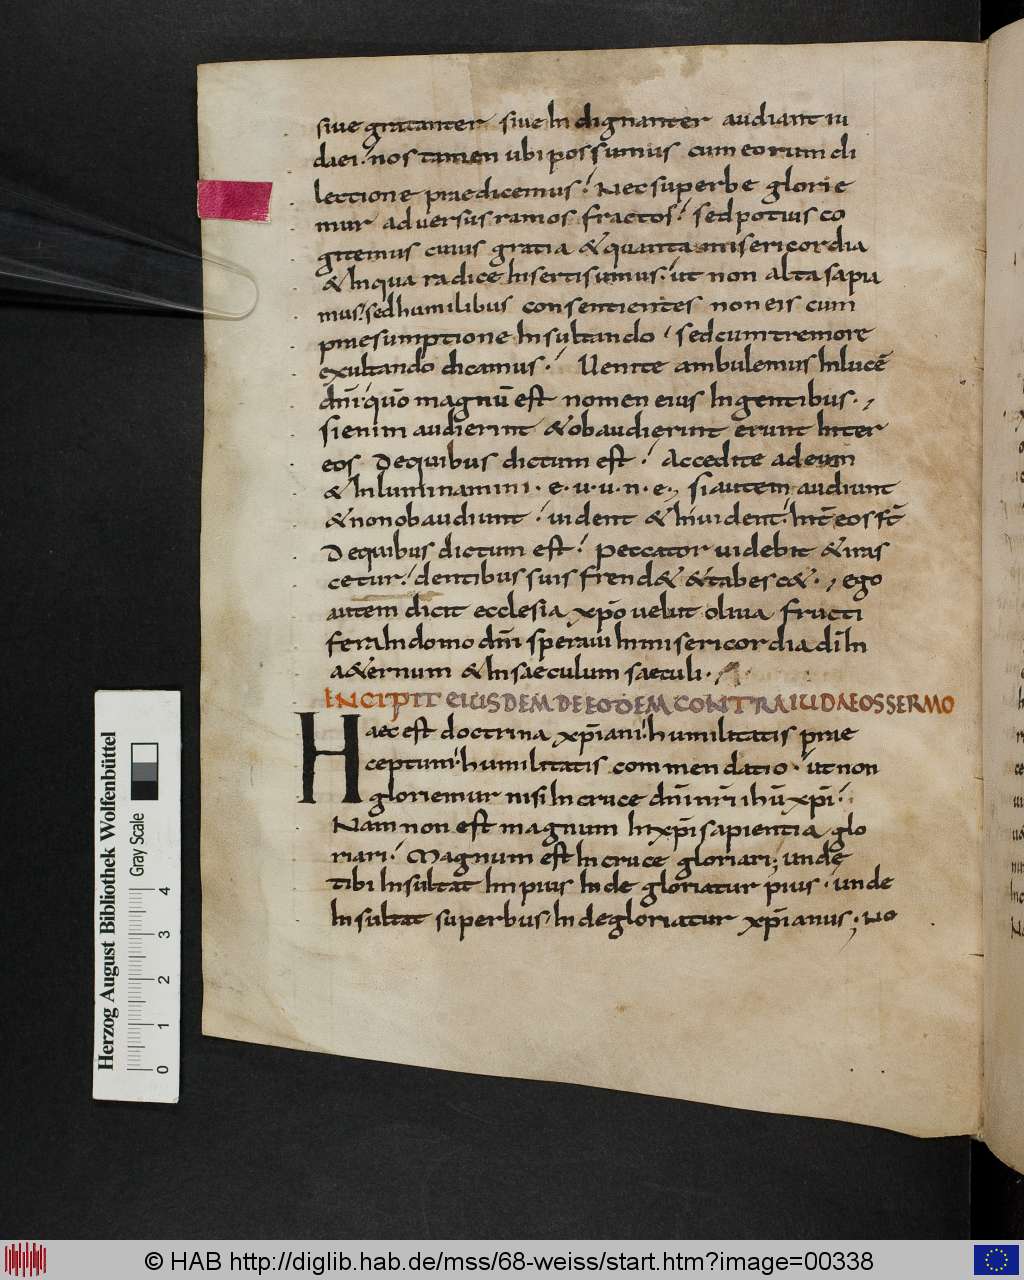 siue gratanter siue indignanter audiant iu
daei; nos tamen ubi possumus cum eorum di
lectione praedicemus; Nec superbe glorie
mur aduersus ramos fractos; sed potius co
gitemus cuius gratia & quanta misericordia
& in qua radice inserti sumus; ut non alta sapia
mus; sed humilibus consentientes non eis cum
praesumptione insultando; sed cum tremore
exultando dicamus; Uenite ambulemus in lucē
dn̄i; quō magnū est nomen eius in gentibus;
si enim audierint & obaudierint erunt inter
eos De quibus dictum est; Accedite ad eum
& inluminamini · e · u · u · n · e · , si autem audiunt
& non obaudiunt; uident & inuident; int̄ eos st̄
De quibus dictum est; peccator uidebit & iras
cetur; dentibus suis frend& & tabesc&; ego
autem dicit ecclesia xp̄o uelut oliua fructi
fera in domo dn̄i speraui in misericordia dī in
a&ernum & in saeculum saeculi;
INCIPIT EIUSDEM DE EODEM CONTRA IUDAEOS SERMO
Haec est doctrina xp̄iani; humilitatis prae
ceptum; humilitatis commendatio · ut non
gloriemur nisi in cruce dn̄i nr̄i ihū xp̄i;
Nam non est magnum in xp̄i sapientia glo
riari; Magnum est in cruce gloriari; unde
tibi insultat impius inde gloriatur pius · unde
insultat superbus inde gloriatur xp̄ianus; No
Herzog August Bibliothek Wolfenbüttel
Gray Scale
0 1 2 3 4
© HAB http://diglib.hab.de/mss/68-weiss/start.htm?image=00338